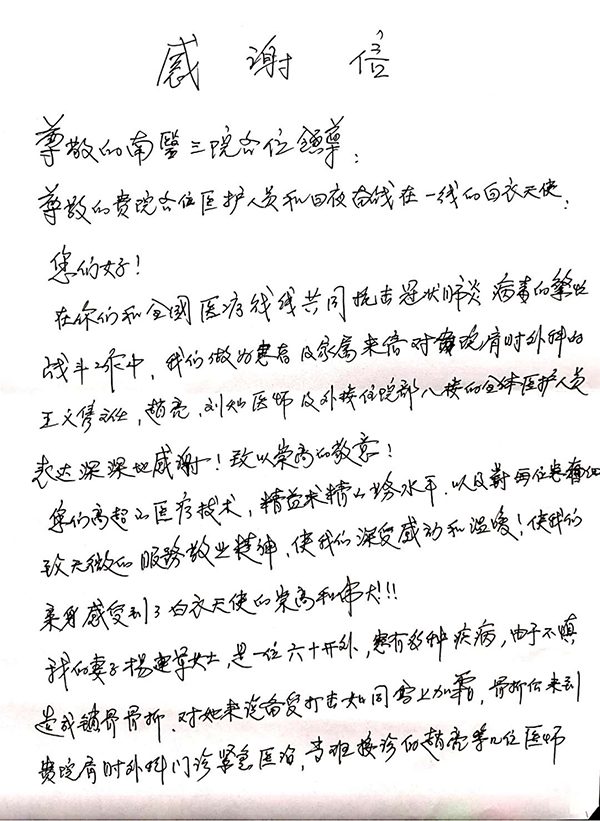 感谢信
尊敬的南医三院各位领导:
尊敬的贵院各位医护人员和日夜奋战在一线的白衣天使:
您们好!
在你们和全国医疗战线共同抗击冠状肺炎病毒的紧张
战斗工作中,我们做为患者及家属来信对贵院肩肘外科的
王义隽主任,赵亮,刘 医师及外接住院部八楼的全体医护人员
表达深深地感谢!致以崇高的敬意!
您们高超的医疗技术,精益求精的业务水平,以及对每位患者细
致入微的服务敬业精神,使我们深受感动和温暖!使我们
亲身感受到了白衣天使的崇高和伟大!!!
我的妻子杨 女士,是一位六十开外,患有多种疾病,由于不慎
造成锁骨骨折,对她来说备受打击如同雪上加霜,骨折后来到
贵院肩肘外科门诊紧急医治,当班接诊的赵亮等几位医师